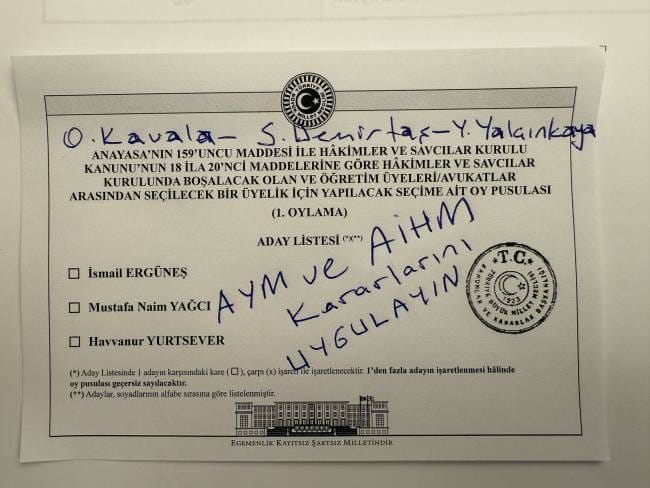 O. Kavala – S. Demirtaş – Y. Yalçınkaya
ANAYASA'NIN 159'UNCU MADDESİ İLE HÂKİMLER VE SAVCILAR KURULU
KANUNU'NUN 18 İLA 20'NCİ MADDELERİNE GÖRE HÂKİMLER VE SAVCILAR
KURULUNDA BOŞALACAK OLAN VE ÖĞRETİM ÜYELERİ/AVUKATLAR
ARASINDAN SEÇİLECEK BİR ÜYELİK İÇİN YAPILACAK SEÇİME AİT OY PUSULASI
(1. OYLAMA)
ADAY LİSTESİ (*)(**)
AYM ve AİHM
Kararlarını
UYGULAYIN
İsmail ERGÜNEŞ
Mustafa Naim YAĞCI
Havvanur YURTSEVER
T.C.
1923
(*) Aday Listesinde 1 adayın karşısındaki kare (☐), çarpı (x) işareti ile işaretlenecektir. 1'den fazla adayın işaretlenmesi hâlinde
oy pusulası geçersiz sayılacaktır.
(**) Adaylar, soyadlarının alfabe sırasına göre listelenmiştir.
EGEMENLİK KAYITSIZ ŞARTSIZ MİLLETİNDİR